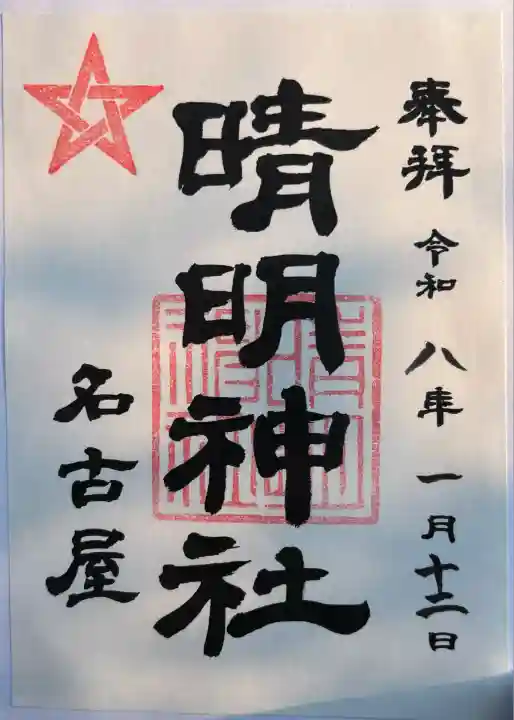 奉拝 令和 八年 一月十二日
晴明神社
名古屋
晴明神社